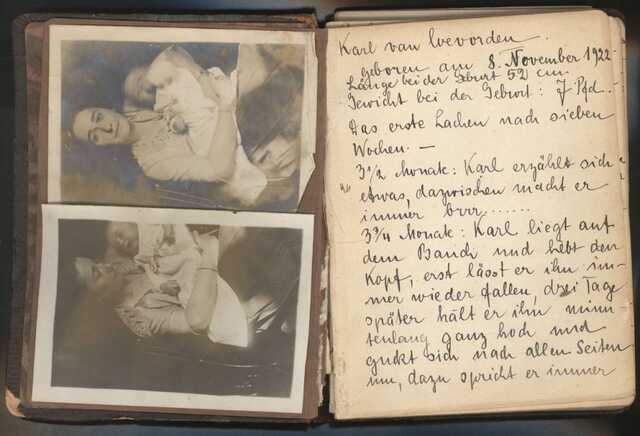 Karl van Woevorden.
geboren am 8. November 1922.
Länge bei der Geburt 52 cm.
Gewicht bei der Geburt: 7 Pfd.
Das erste Lachen nach sieben
Wochen. —
3 1/2 Monate: Karl erzählt sich
etwas, dazwischen macht er
immer brrr.......
3 3/4 Monate: Karl liegt auf
dem Bauch und hebt den
Kopf, erst lässt er ihn im-
mer wieder fallen, drei Tage
später hält er ihn minu-
tenlang ganz hoch und
guckt sich nach allen Seiten
um, dazu spricht er immer